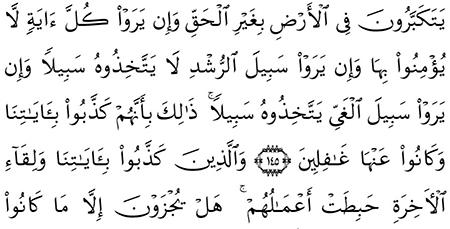 يَتَكَبَّرُونَ فِى ٱلْأَرْضِ بِغَيْرِ ٱلْحَقِّ وَإِن يَرَوْا۟ كُلَّ ءَايَةٍ لَّا
يُؤْمِنُوا۟ بِهَا وَإِن يَرَوْا۟ سَبِيلَ ٱلرُّشْدِ لَا يَتَّخِذُوهُ سَبِيلًا وَإِن
يَرَوْا۟ سَبِيلَ ٱلْغَىِّ يَتَّخِذُوهُ سَبِيلًا ۚ ذَٰلِكَ بِأَنَّهُمْ كَذَّبُوا۟ بِـَٔايَـٰتِنَا
وَكَانُوا۟ عَنْهَا غَـٰفِلِينَ ﴿١٤٥﴾ وَٱلَّذِينَ كَذَّبُوا۟ بِـَٔايَـٰتِنَا وَلِقَآءِ
ٱلْـَٔاخِرَةِ حَبِطَتْ أَعْمَـٰلُهُمْ ۚ هَلْ يُجْزَوْنَ إِلَّا مَا كَانُوا۟